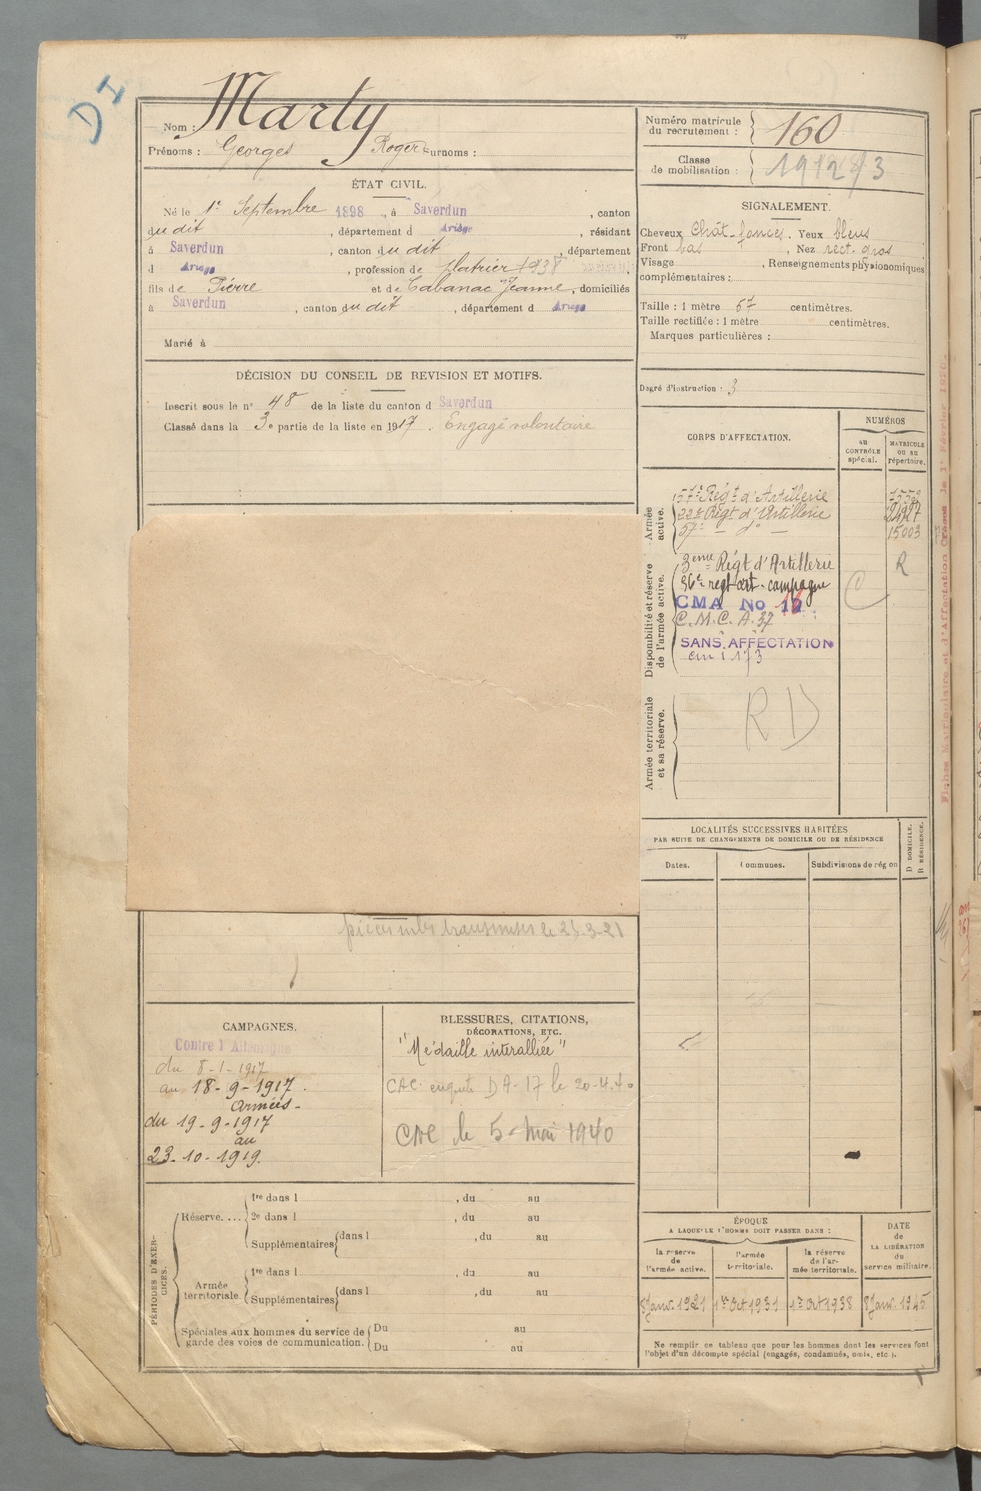 DI
Nom : Marty
Prénoms : Georges Roger Surnoms :
Numéro matricule du recrutement : 160
Classe de mobilisation :
ÉTAT CIVIL.
Né le 1er Septembre 1898, à Saverdun, canton
du dit, département d Ariège, résidant
à Saverdun, canton du dit, département
d Ariège, profession de platrier 1938
fils de Pierre et de Cabanac Jeanne, domiciliés
à Saverdun, canton du dit, département d Ariège
Marié à
SIGNALEMENT.
Cheveux Chât-foncés. Yeux bleus
Front bas, Nez rect-gros
Visage, Renseignements physionomiques
complémentaires :
Taille : 1 mètre 67 centimètres.
Taille rectifiée : 1 mètre centimètres.
Marques particulières :
Degré d'instruction : 3
DÉCISION DU CONSEIL DE REVISION ET MOTIFS.
Inscrit sous le n° 48 de la liste du canton d Saverdun
Classé dans la 3e partie de la liste en 1917. Engagé volontaire
CORPS D'AFFECTATION.
NUMÉROS
AU CONTRÔLE spécial.
MATRICULE OU AU répertoire.
Armée active.
57e Régt d'Artillerie
22e Régt d'Artillerie
57e - do - 15003
Disponibilité et réserve de l'armée active.
3eme Régt d'Artillerie R
56e regt art. campagne C
CMA No
C.M.C.A. 37
SANS AFFECTATION
Armée territoriale et sa réserve.
RD
LOCALITÉS SUCCESSIVES HABITÉES
PAR SUITE DE CHANGEMENTS DE DOMICILE OU DE RÉSIDENCE
Dates.
Communes.
Subdivisions de région
D DOMICILE.
R RÉSIDENCE.
pièces mles transmises le 23-3-21
CAMPAGNES.
Contre l'Allemagne
du 8-1-1917
au 18-9-1917.
Armées-
du 19-9-1917
au
23-10-1919.
BLESSURES, CITATIONS,
DÉCORATIONS, ETC.
"Médaille interalliée"
CAC enquete DA-17 le 20-4-40
CAC le 5 mai 1940
PÉRIODES D'EXERCICES.
Réserve.... 1re dans l, du au
2e dans l, du au
Supplémentaires dans l, du au
Armée territoriale. 1re dans l, du au
Supplémentaires dans l, du au
Spéciales aux hommes du service de garde des voies de communication. Du au
Du au
ÉPOQUE
A LAQUELLE L'HOMME DOIT PASSER DANS :
la réserve de l'armée active.
l'armée territoriale.
la réserve de l'armée territoriale.
DATE DE LA LIBÉRATION du service militaire.
8 Janv. 1921
1er Oct 1931
1er Oct 1938
8 Janv. 1945
Ne remplir ce tableau que pour les hommes dont les services font
l'objet d'un décompte spécial (engagés, condamnés, omis, etc.).